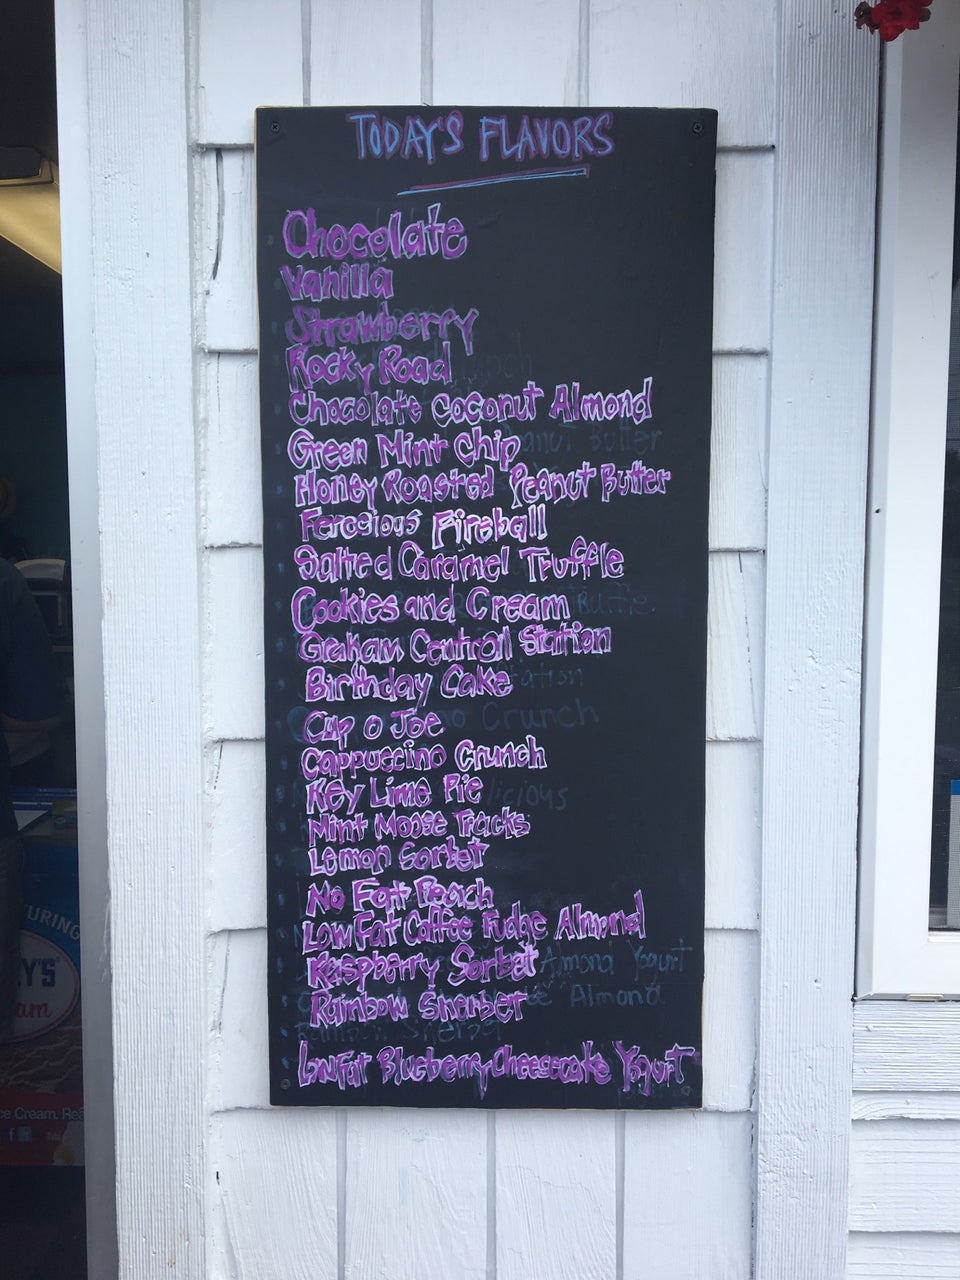 TODAY'S FLAVORS
Chocolate
Vanilla
Strawberry
Rocky Road
Chocolate Coconut Almond
Green Mint Chip
Honey Roasted Peanut Butter
Ferocious Fireball
Salted Caramel Truffle
Cookies and Cream
Graham Central Station
Birthday Cake
Cup o Joe
Cappuccino Crunch
Key Lime Pie
Mint Moose Tracks
Lemon Sorbet
No Fat Peach
Low Fat Coffee Fudge Almond
Raspberry Sorbet
Rainbow Sherbet
Low Fat Blueberry Cheesecake Yogurt
URING
Y'S
am
ce Cream. Rea